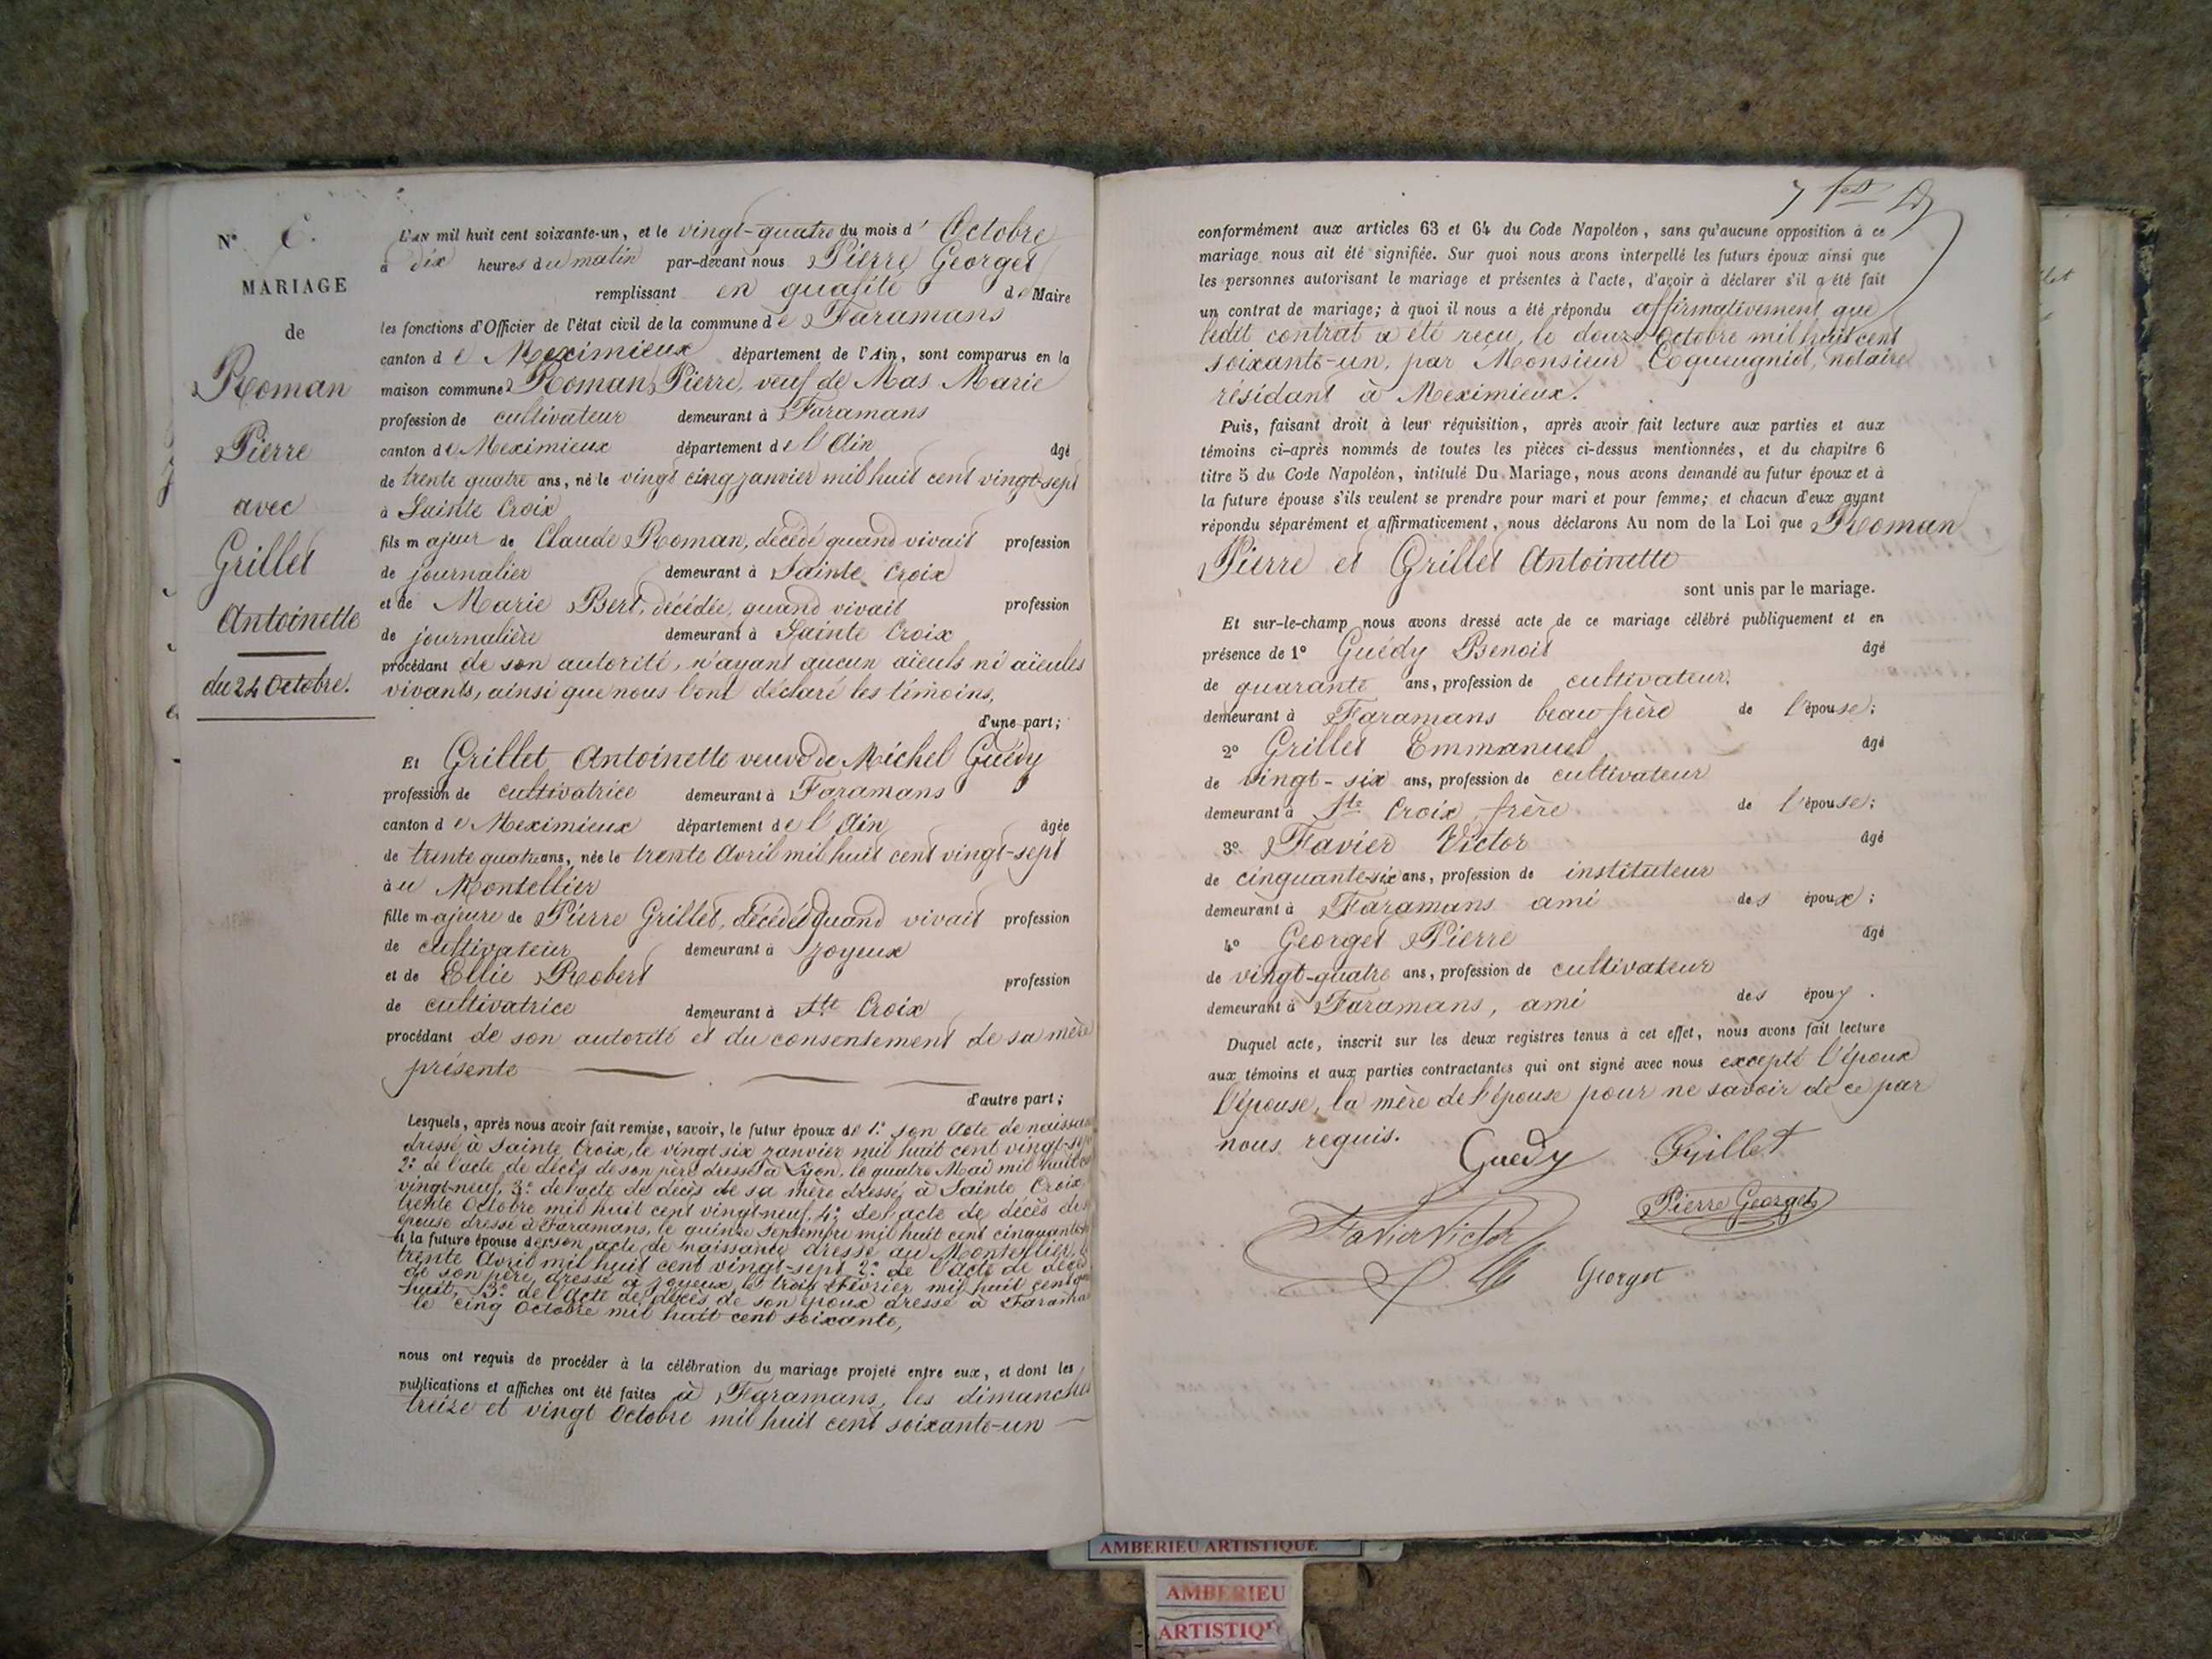 N° 6.
MARIAGE
de
Roman
Pierre
avec
Grillet
Antoinette
du 24 Octobre.
L'AN mil huit cent soixante-un, et le vingt-quatre du mois d'Octobre
à dix heures du matin par-devant nous Pierre Georget
remplissant en qualité de Maire
les fonctions d'Officier de l'état civil de la commune de Faramans
canton de Meximieux département de l'Ain, sont comparus en la
maison commune Roman Pierre, veuf de Mas Marie
profession de cultivateur demeurant à Faramans
canton de Meximieux département de l'Ain âgé
de trente quatre ans, né le vingt cinq janvier mil huit cent vingt-sept
à Sainte Croix
fils majeur de Claude Roman, décédé quand vivait profession
de journalier demeurant à Sainte Croix
et de Marie Bert, décédée, quand vivait profession
de journalière demeurant à Sainte Croix
procédant de son autorité, n'ayant aucun aïeuls ni aïeules
vivants, ainsi que nous l'ont déclaré les témoins,
d'une part;
Et Grillet Antoinette veuve de Michel Guédy
profession de cultivatrice demeurant à Faramans
canton de Meximieux département de l'Ain âgée
de trente quatre ans, née le trente Avril mil huit cent vingt-sept
à u Montellier
fille majeure de Pierre Grillet, décédé quand vivait profession
de cultivateur demeurant à Joyeux
et de Ellie Robert profession
de cultivatrice demeurant à Ste Croix
procédant de son autorité et du consentement de sa mère
présente
d'autre part;
Lesquels, après nous avoir fait remise, savoir, le futur époux de 1.° son Acte de
dressé à Sainte Croix, le vingt six janvier mil huit cent
2.° de l'acte de décès de son père dressé à Lyon, le quatre Mai mil huit
vingt-neuf, 3.° de l'acte de décès de sa mère dressé à Sainte Croix,
trente Octobre mil huit cent vingt-neuf, 4.° de l'acte de décès de
épouse dressé à Faramans, le quinze Septembre mil huit cent
et la future épouse de son acte de naissance dressé au Montellier,
trente Avril mil huit cent vingt-sept 2.° de l'acte de
de son père, dressé à Joyeux, le trois Février mil huit cent
huit, 3.° de l'Acte de décès de son époux dressé à
le cinq Octobre mil huit cent soixante,
nous ont requis de procéder à la célébration du mariage projeté entre eux, et dont les
publications et affiches ont été faites à Faramans, les dimanches
treize et vingt Octobre mil huit cent soixante-un
conformément aux articles 63 et 64 du Code Napoléon, sans qu'aucune opposition à ce
mariage nous ait été signifiée. Sur quoi nous avons interpellé les futurs époux ainsi que
les personnes autorisant le mariage et présentes à l'acte, d'avoir à déclarer s'il a été fait
un contrat de mariage; à quoi il nous a été répondu affirmativement, que
ledit contrat a été reçu, le douze Octobre mil huit cent
soixante-un, par Monsieur Coqueugniot, notaire
résidant à Meximieux.
Puis, faisant droit à leur réquisition, après avoir fait lecture aux parties et aux
témoins ci-après nommés de toutes les pièces ci-dessus mentionnées, et du chapitre 6
titre 5 du Code Napoléon, intitulé Du Mariage, nous avons demandé au futur époux et à
la future épouse s'ils veulent se prendre pour mari et pour femme; et chacun d'eux ayant
répondu séparément et affirmativement, nous déclarons Au nom de la Loi que Roman
Pierre et Grillet Antoinette
sont unis par le mariage.
Et sur-le-champ nous avons dressé acte de ce mariage célébré publiquement et en
présence de 1° Guédy Benoit âgé
de quarante ans, profession de cultivateur,
demeurant à Faramans beau frère de l'épouse;
2° Grillet Emmanuel âgé
de vingt-six ans, profession de cultivateur
demeurant à Ste Croix, frère de l'épouse;
3° Favier Victor âgé
de cinquante-six ans, profession de instituteur
demeurant à Faramans ami des époux;
4° Georget Pierre âgé
de vingt-quatre ans, profession de cultivateur
demeurant à Faramans, ami des époux.
Duquel acte, inscrit sur les deux registres tenus à cet effet, nous avons fait lecture
aux témoins et aux parties contractantes qui ont signé avec nous excepté l'époux
l'épouse, la mère de l'épouse pour ne savoir de ce par
nous requis.
Guedy Grillet
Favier Victor Pierre Georget
Georget
AMBERIEU ARTISTIQUE
AMBERIEU
ARTISTIQ